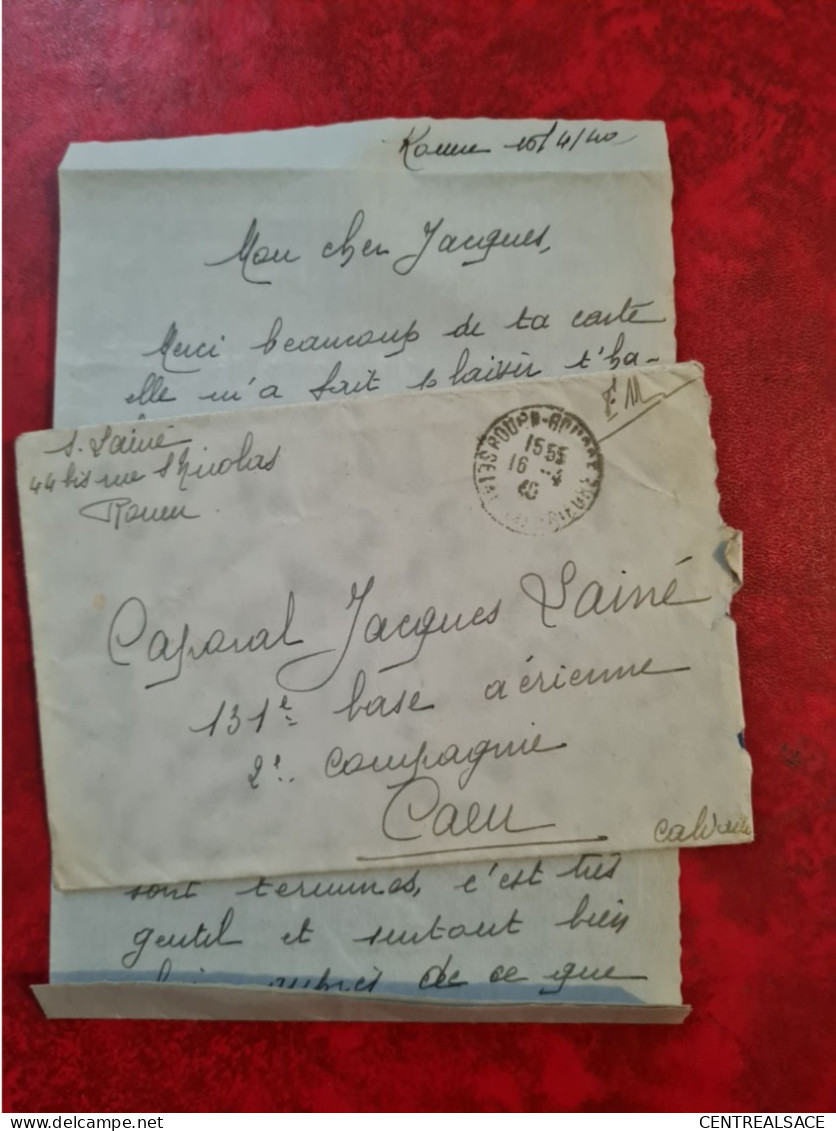 Rouen 16/4/40
Mon cher Jacques,
Merci beaucoup de ta carte
elle m'a fait plaisir t'ha-
F.M
S. Lainé
44 bis rue St Nicolas
Rouen
ROUEN-
15 55
16 -4
40
SEINE INFERIEURE
Caporal Jacques Lainé
131e base aérienne
2e compagnie
Caen
Calvados
sont terminés, c'est très
gentil et surtout bien
auprès de ce que
CENTREALSACE